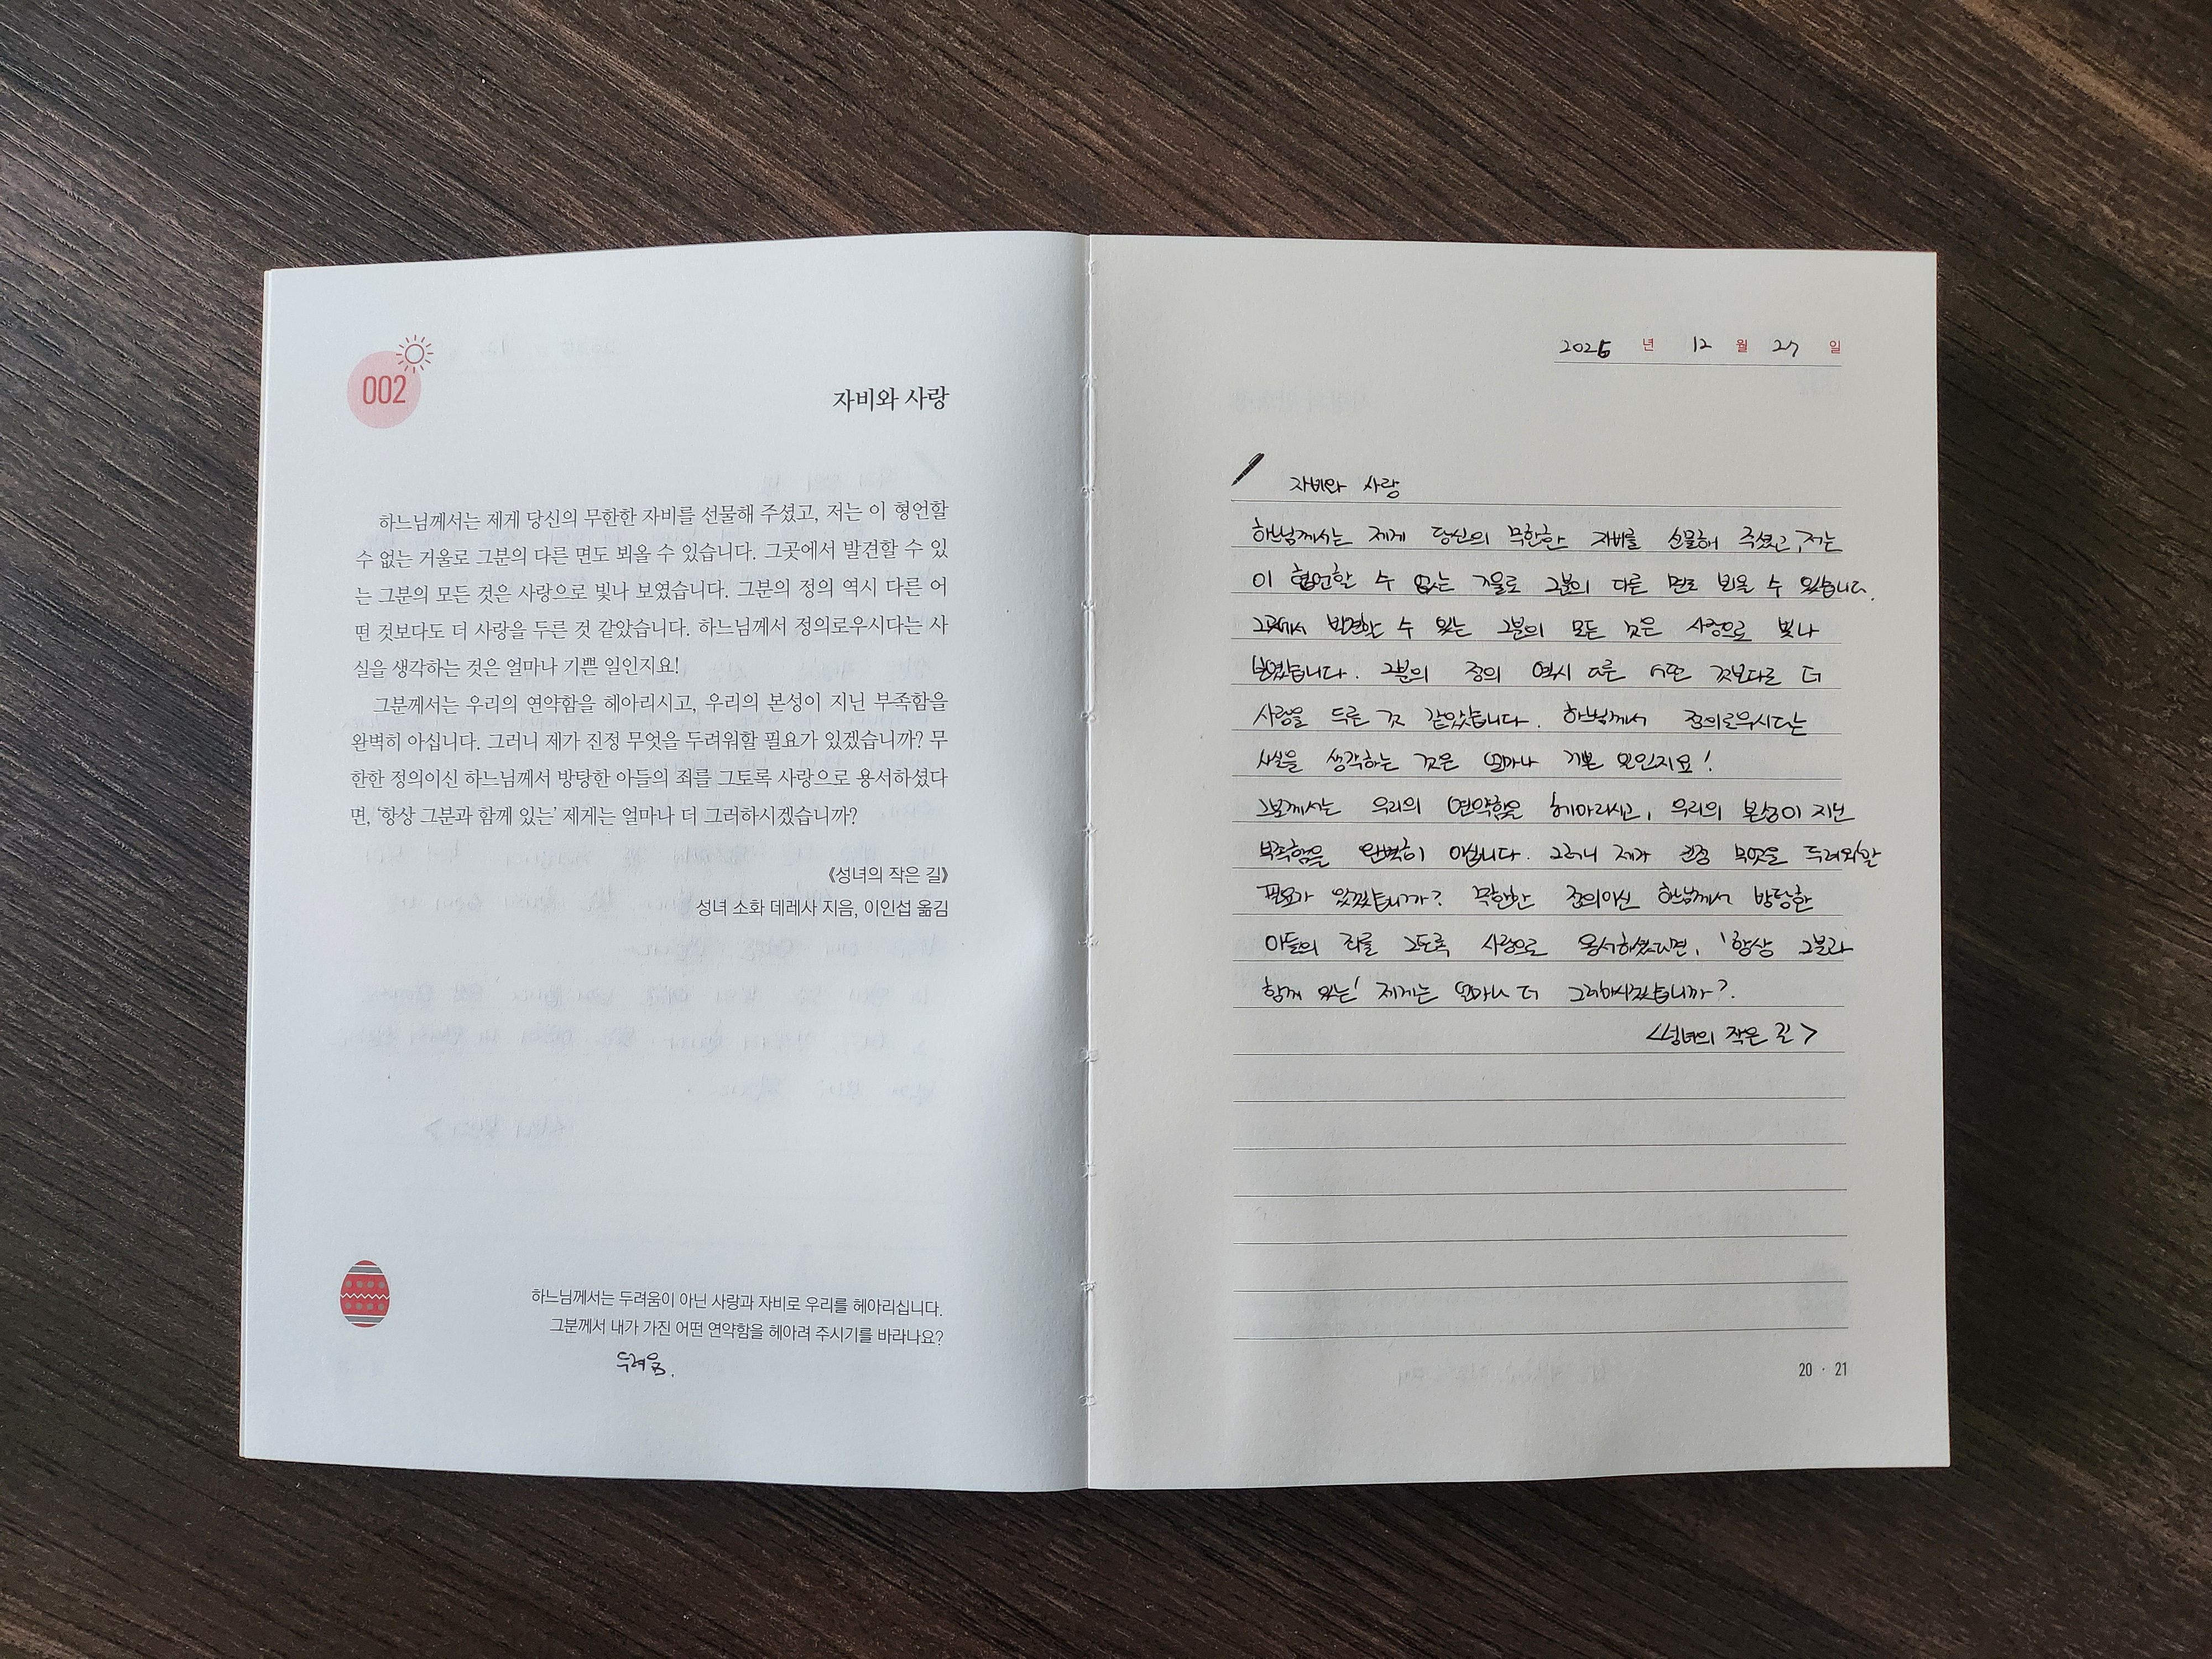 002
자비와 사랑
하느님께서는 제게 당신의 무한한 자비를 선물해 주셨고, 저는 이 형언할
수 없는 거울로 그분의 다른 면도 뵈올 수 있습니다. 그곳에서 발견할 수 있
는 그분의 모든 것은 사랑으로 빛나 보였습니다. 그분의 정의 역시 다른 어
떤 것보다도 더 사랑을 두른 것 같았습니다. 하느님께서 정의로우시다는 사
실을 생각하는 것은 얼마나 기쁜 일인지요!
그분께서는 우리의 연약함을 헤아리시고, 우리의 본성이 지닌 부족함을
완벽히 아십니다. 그러니 제가 진정 무엇을 두려워할 필요가 있겠습니까? 무
한한 정의이신 하느님께서 방탕한 아들의 죄를 그토록 사랑으로 용서하셨다
면, ‘항상 그분과 함께 있는’ 제게는 얼마나 더 그러하시겠습니까?
《성녀의 작은 길》
성녀 소화 데레사 지음, 이인섭 옮김
하느님께서는 두려움이 아닌 사랑과 자비로 우리를 헤아리십니다.
그분께서 내가 가진 어떤 연약함을 헤아려 주시기를 바라나요?
두려움.
년 12 월 27 일
자비와 사랑
하느님께서는 제게 당신의 무한한 자비를 선물해 주셨고, 저는
이 형언할 수 없는 거울로 그분의 다른 면도 뵈올 수 있습니다.
그곳에서 발견할 수 있는 그분의 모든 것은 사랑으로 빛나
보였습니다. 그분의 정의 역시 다른 어떤 것보다도 더
사랑을 두른 것 같았습니다. 하느님께서 정의로우시다는
사실을 생각하는 것은 얼마나 기쁜 일인지요!
그분께서는 우리의 연약함을 헤아리시고, 우리의 본성이 지닌
부족함을 완벽히 아십니다. 그러니 제가 진정 무엇을 두려워할
필요가 있겠습니까? 무한한 정의이신 하느님께서 방탕한
아들의 죄를 그토록 사랑으로 용서하셨다면, '항상 그분과
함께 있는' 제게는 얼마나 더 그러하시겠습니까?.
<성녀의 작은 길>
20 · 21